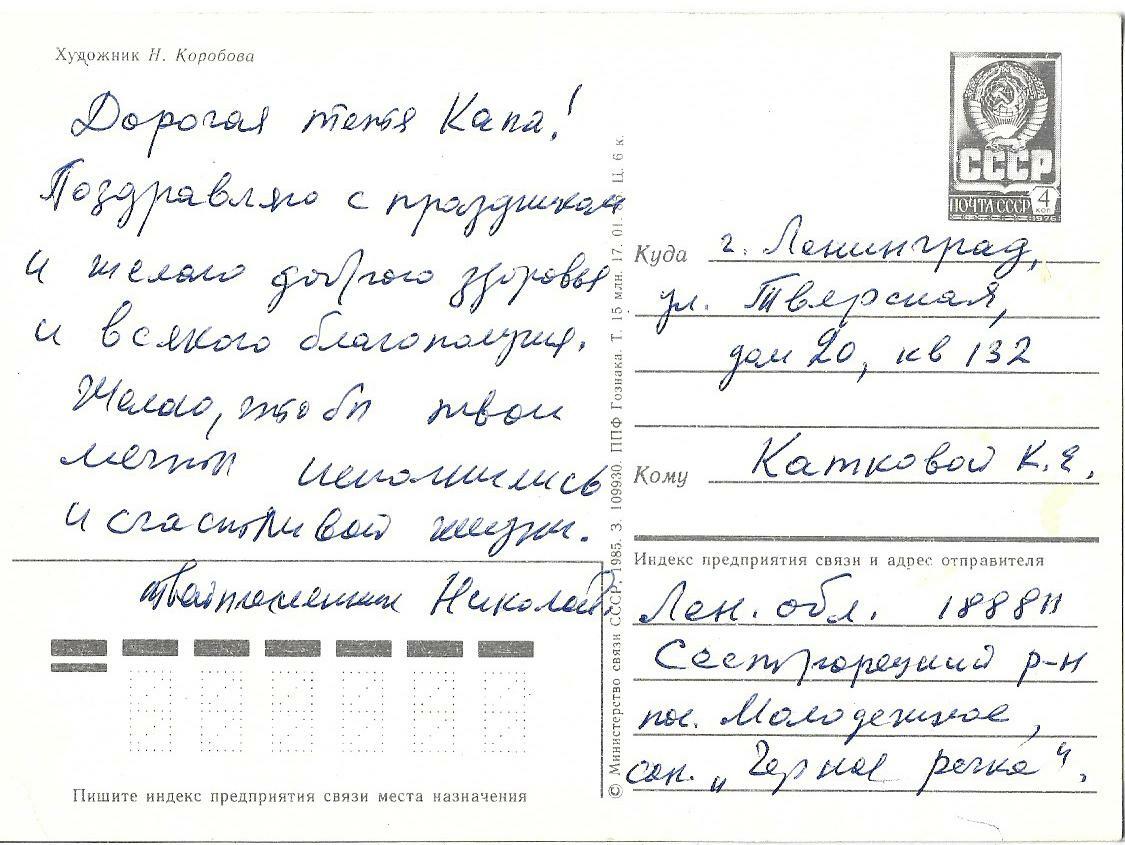 Художник Н. Коробова
Дорогая тетя Капа!
Поздравляю с праздником
и желаю доброго здоровья
и всякого благополучия.
Желаю, чтобы твои
мечты исполнились
и счастливой жизни.
твой племянник Николай.
Пишите индекс предприятия связи места назначения
© Министерство связи СССР, 1985. З. 109930. ППФ Гознака. Т. 15 млн. 17. 01. Ц. 6 к.
СССР
ПОЧТА СССР 4 КОП
1976
Куда г. Ленинград,
ул. Тверская,
дом 20, кв 132
Кому Катковой К. Е.
Индекс предприятия связи и адрес отправителя
Лен. обл. 188811
Сестрорецкий р-н
пос. Молодежное,
сан. „Черная речка".